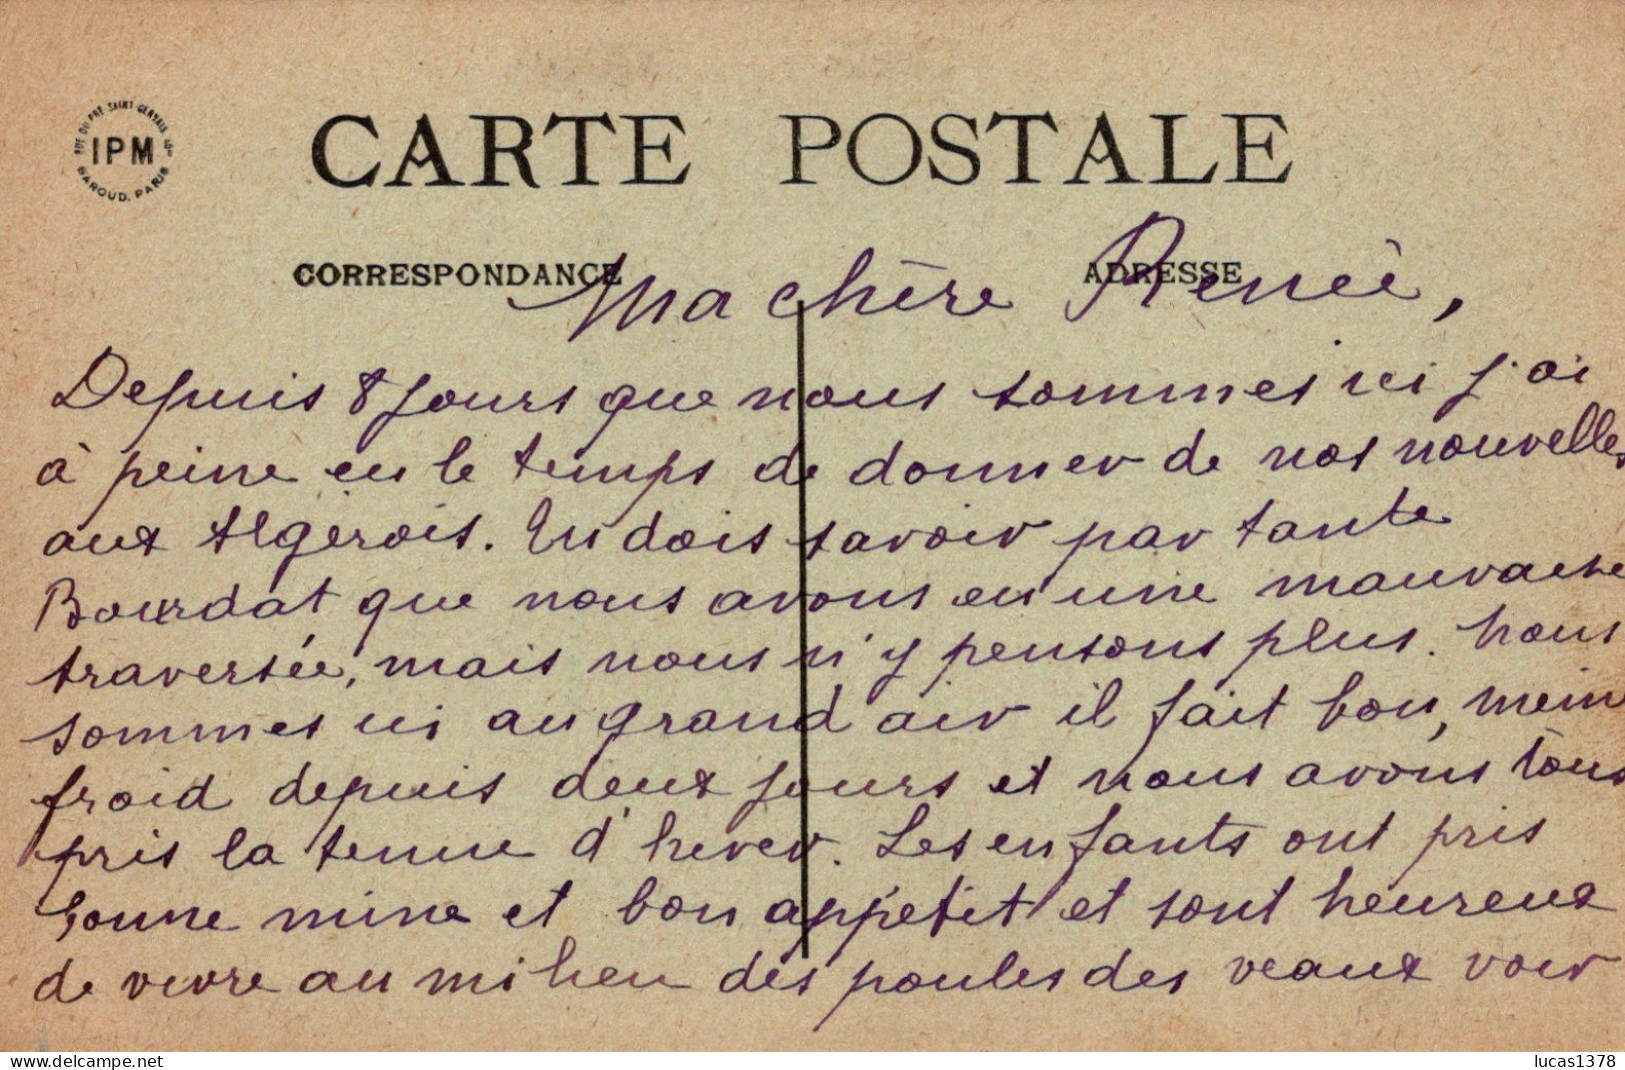 RUE DU PRÉ SAINT GERVAIS
IPM
BAROUD. PARIS
CARTE POSTALE
CORRESPONDANCE
ADRESSE
Ma chère Renée,
Depuis 8 jours que nous sommes ici j'ai
à peine eu le temps de donner de nos nouvelles
aux Algérois. Tu dois savoir par tante
Bourdat que nous avons eu une mauvaise
traversée, mais nous n'y pensons plus. Nous
sommes ici au grand air il fait bon, meme
froid depuis deux jours et nous avons tous
pris la tenue d'hiver. Les enfants ont pris
bonne mine et bon appétit et sont heureux
de vivre au milieu des poules des veaux voir
www.delcampe.net
lucas1378